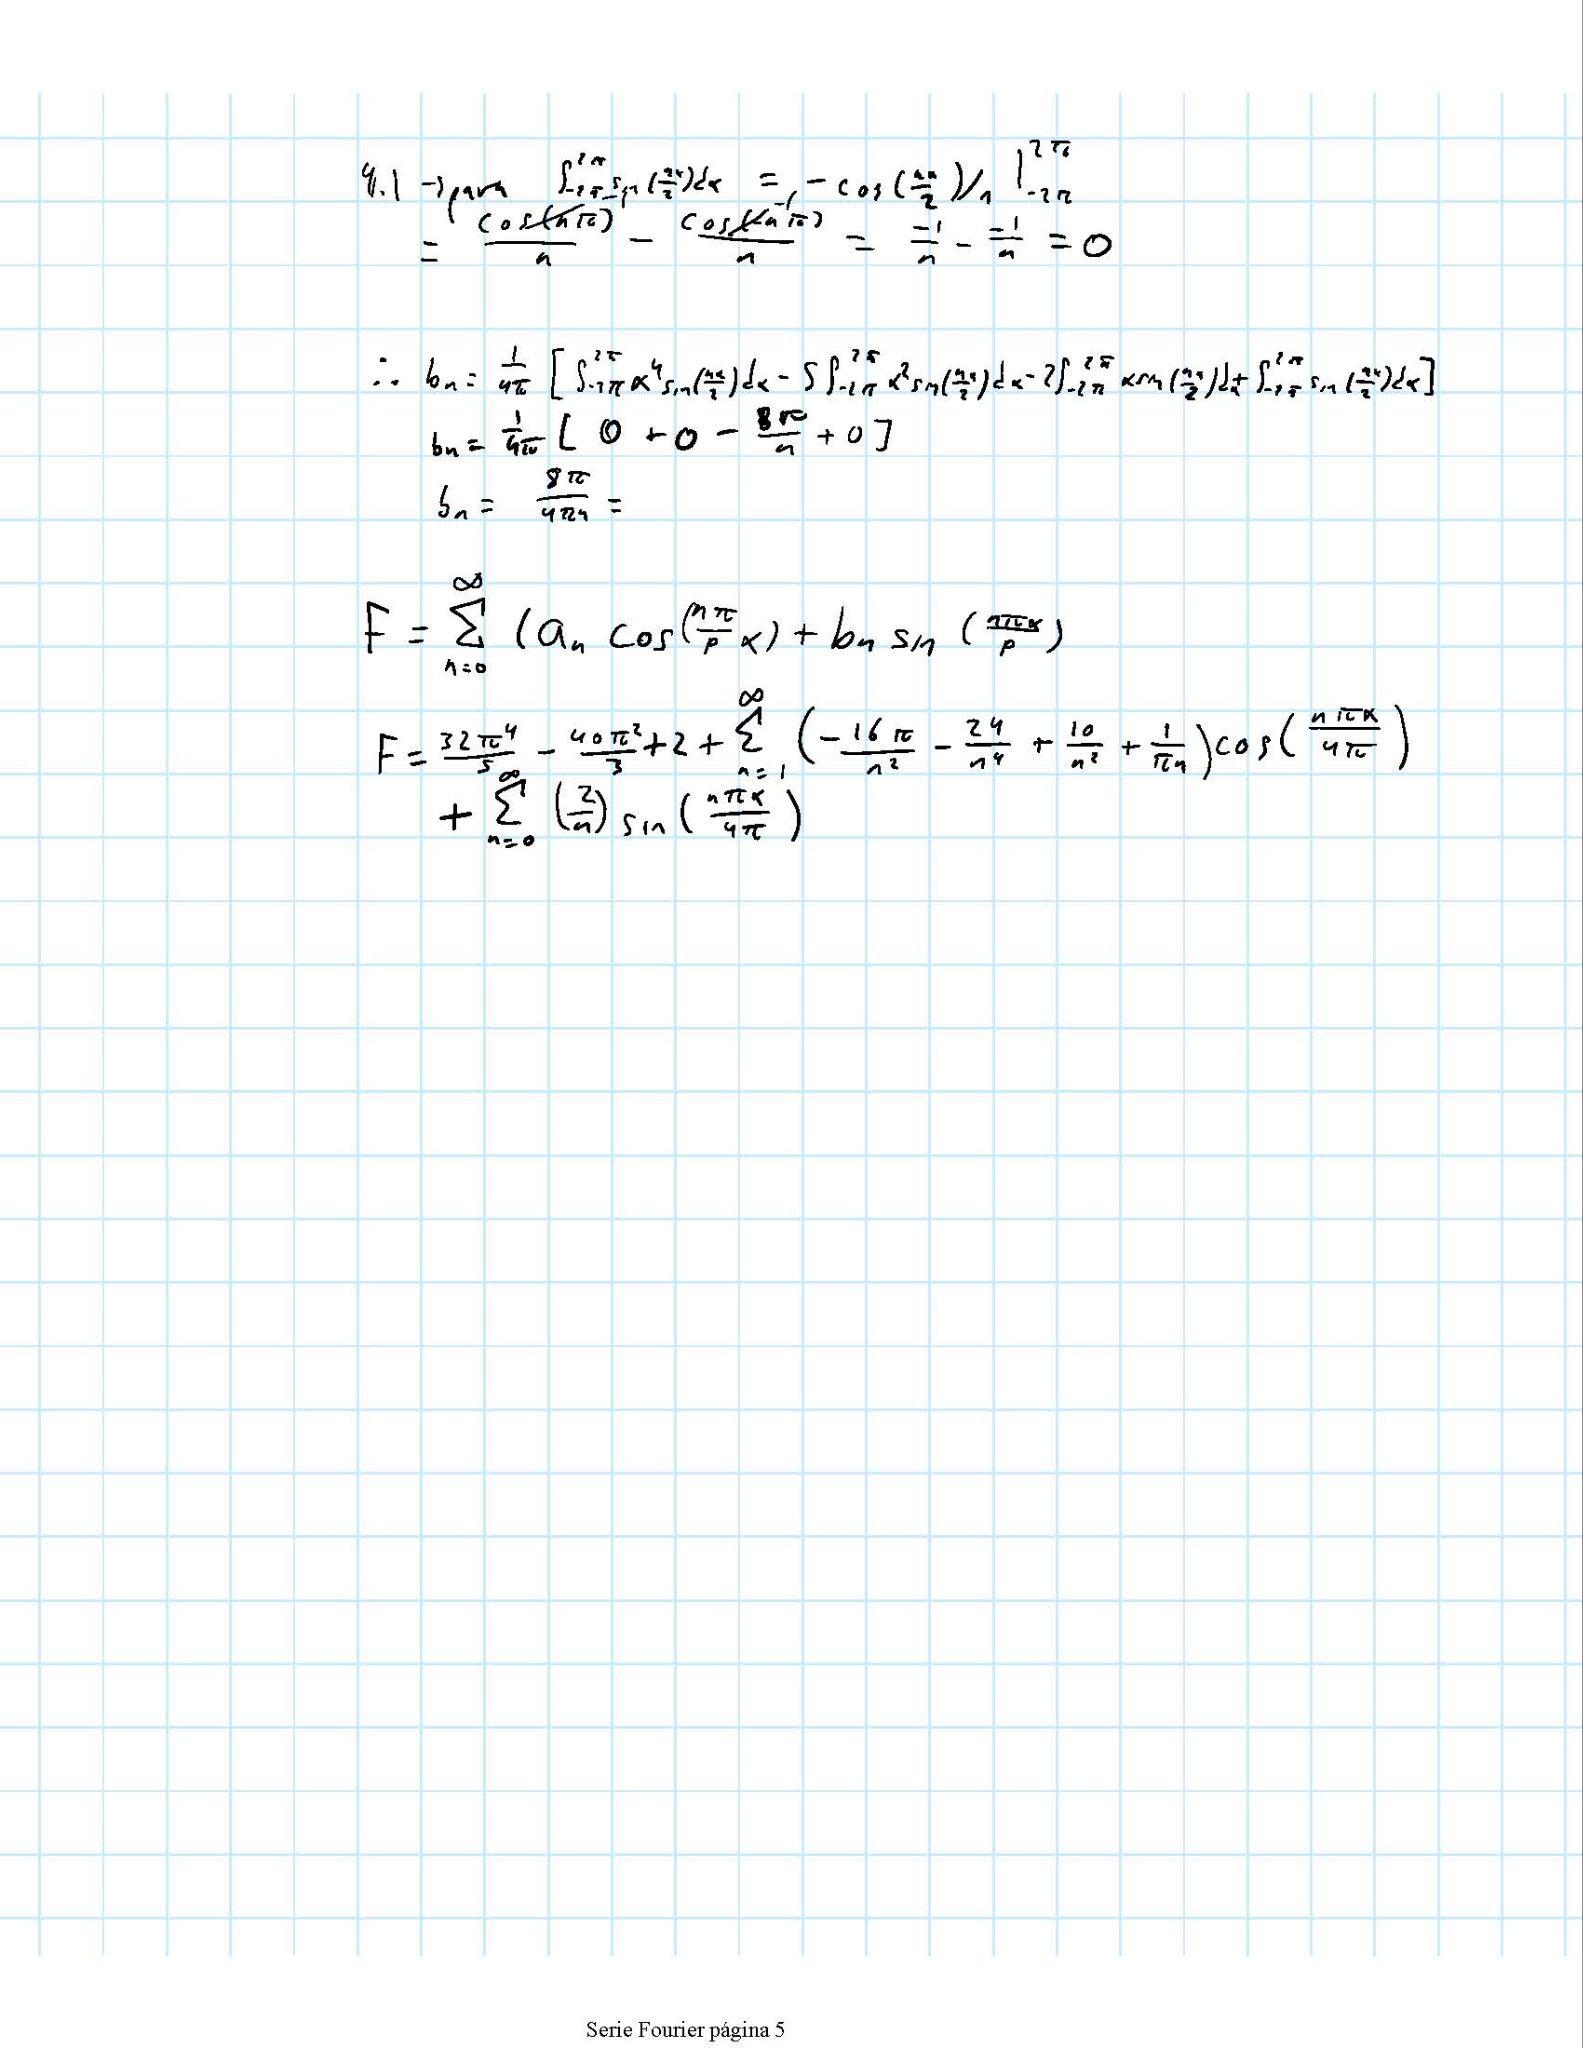 4.1 → para ∫_{-2π}^{2π} sin(nx/2)dx = -cos(nx/2)/n |_{-2π}^{2π}
= cos(nπ)/n - cos(-nπ)/n = -1/n - -1/n = 0
∴ bn = 1/4π [∫_{-2π}^{2π} x⁴sin(nx/2)dx - 5∫_{-2π}^{2π} x²sin(nx/2)dx - 2∫_{-2π}^{2π} xsin(nx/2)dx + ∫_{-2π}^{2π} sin(nx/2)dx]
bn = 1/4π [ 0 + 0 - 8π/n + 0 ]
bn = 8π/4πn =
F = ∑_{n=0}^{∞} (an cos(nπ/p x) + bn sin (nπx/p)
F = 32π⁴/5 - 40π²/3 + 2 + ∑_{n=1}^{∞} (-16π/n² - 24/n⁴ + 10/n² + 1/πn) cos(nπx/4π)
+ ∑_{n=0}^{∞} (2/n) sin (nπx/4π)
Serie Fourier página 5